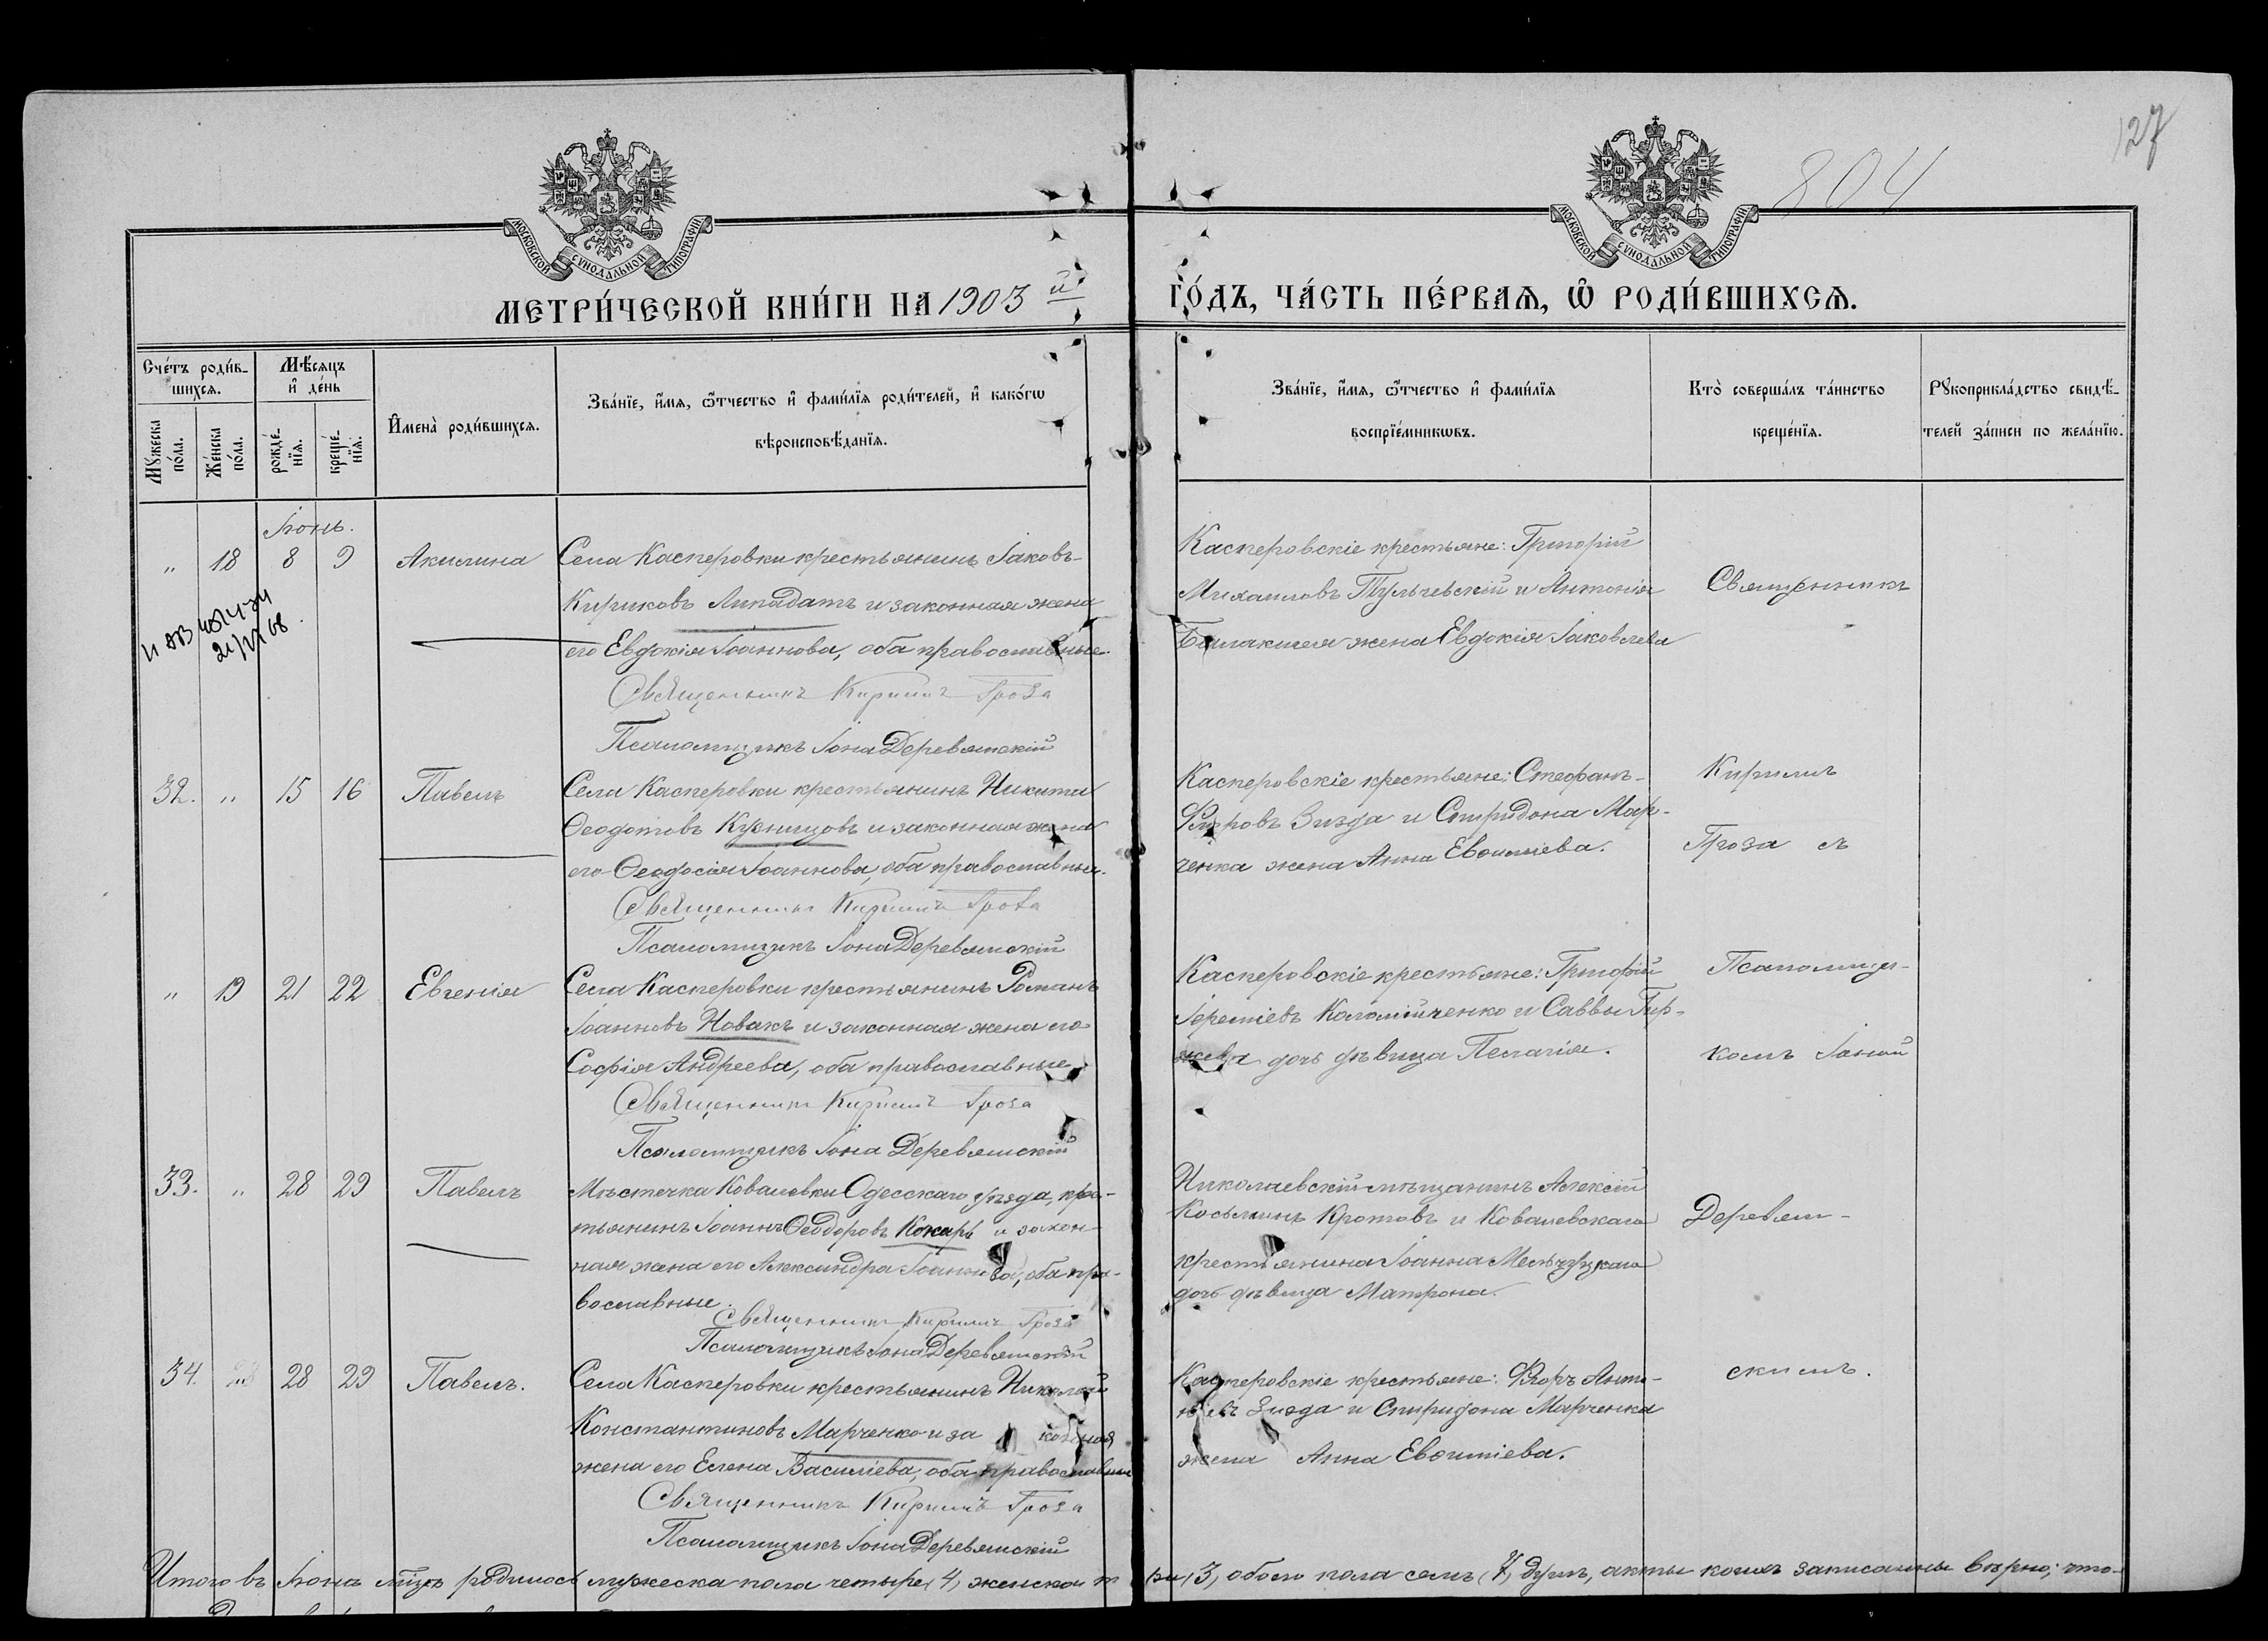 127
804
МОСКОВСКОЙ СѴНОДАЛЬНОЙ ТИПОГРАФІИ
МОСКОВСКОЙ СѴНОДАЛЬНОЙ ТИПОГРАФІИ
МЕТРИ́ЧЕСКОЙ КНИ́ГИ НА 1903 й ГО́ДЪ, ЧА́СТЬ ПЕ́РВАѦ, Ѽ РОДИ́ВШИХСѦ.
Сче́тъ роди́в-
шихсѧ.
Мꙋ́жеска
по́ла.
Же́нска
по́ла.
Мѣ́сѧцъ
и҆ де́нь
рожде́-
нїѧ.
креще́-
нїѧ.
И҆мена̀ роди́вшихсѧ.
Зва́нїе, и҆́мѧ, ѻ҆́тчество и҆ фами́лїѧ роди́телей, и҆ како́гѡ
вѣроисповѣ́данїѧ.
Зва́нїе, и҆́мѧ, ѻ҆́тчество и҆ фами́лїѧ
воспрїе́мникѡвъ.
Кто̀ соверша́лъ та́инство
креще́нїѧ.
Рꙋкоприкла́дство свидѣ́-
телей за́писи по жела́нїю.
Іюнь.
" 18 8 9 Акилина
Села Касперовки крестьянинъ Іаковъ
Кириковъ Липадатъ и законная жена
его Евдокія Іоаннова, оба православные.
Священникъ Кириллъ Гроза
Псаломщикъ Іона Деревянскій
Касперовскіе крестьяне: Григорій
Михаиловъ Тульчевскій и Антонія
жена Евдокія Іаковлева
Священникъ
32. " 15 16 Павелъ
Села Касперовки крестьянинъ Никита
Ѳеодотовъ Кузнецовъ и законная жена
его Ѳеодосія Іоаннова, оба православные.
Священникъ Кириллъ Гроза
Псаломщикъ Іона Деревянскій
Касперовскіе крестьяне: Стефанъ
Флоровъ Зизда и Спиридона Мар-
ченка жена Анна Евѳиміева.
Кириллъ
Гроза съ
" 19 21 22 Евгенія
Села Касперовки крестьянинъ Романъ
Іоанновъ Новакъ и законная жена его
Софія Андреева, оба православные
Священникъ Кириллъ Гроза
Псаломщикъ Іона Деревянскій
Касперовскіе крестьяне: Григорій
Іереміевъ Коломійченко и Саввы Гир-
жева дочь дѣвица Пелагія.
Псаломщи-
комъ Іоною
33. " 28 29 Павелъ
Мѣстечка Ковалевки Одесскаго уѣзда, крес-
тьянинъ Іоаннъ Ѳеодоровъ Кохарь и закон-
ная жена его Александра Іоаннова, оба пра-
вославные.
Священникъ Кириллъ Гроза
Псаломщикъ Іона Деревянскій
Николаевскій мѣщанинъ Алексій
Косьминъ Кротовъ и Ковалевскаго
крестьянина Іоанна
дочь дѣвица Матрона.
Деревян-
34. " 28 29 Павелъ.
Села Касперовки крестьянинъ Николай
Константиновъ Марченко и законная
жена его Елена Василіева, оба православные
Священникъ Кириллъ Гроза
Псаломщикъ Іона Деревянскій
Касперовскіе крестьяне: Флоръ Анто-
ніевъ Зизда и Спиридона Марченка
жена Анна Евѳиміева.
скимъ.
Итого въ Іюнѣ мѣсяцѣ родилось мужеска пола четыре (4), женска три (3), обоего пола семь (7) душъ, акты коихъ записаны вѣрно; что-